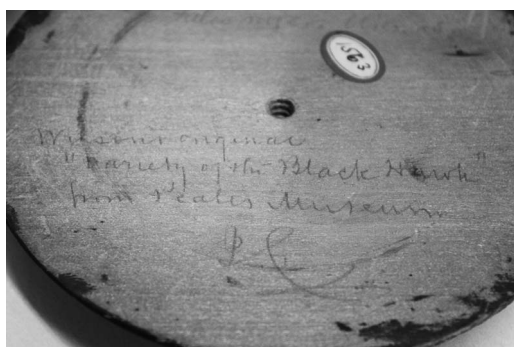 1563
Wilson's original
"Variety of the Black Hawk"
from Peale's Museum